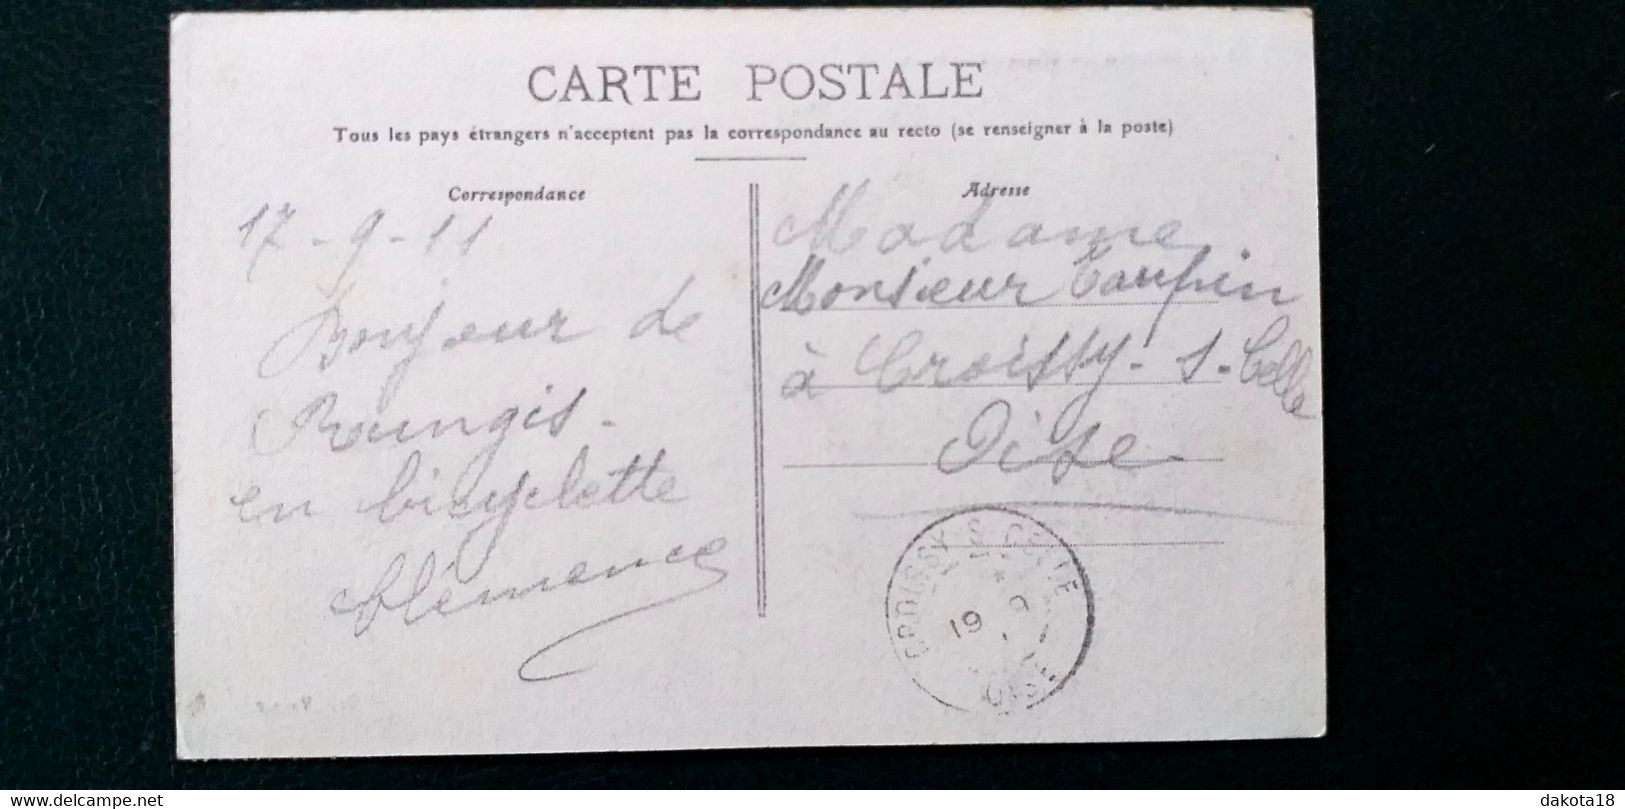 CARTE POSTALE
Tous les pays étrangers n'acceptent pas la correspondance au recto (se renseigner à la poste)
Correspondance
17-9-11
Bonjour de
Rungis.
en bicyclette
Clémence
Adresse
Madame
Monsieur Taupin
à Croissy-s-Celle
Oise
CROISSY S CELLE
19 9
OISE
delcampe.net
dakota18